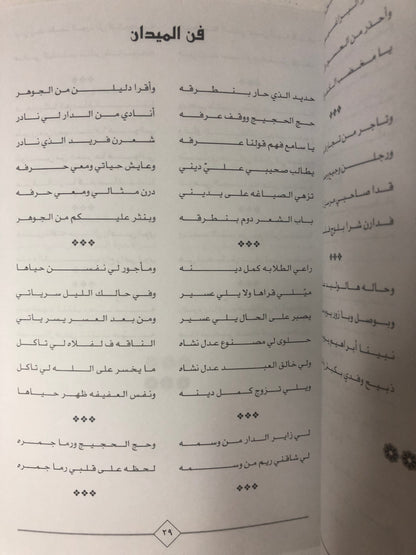 فن الميدان
حديد الذي حار بنطرقه وأقرا دليلن من الجوهر
حج الحجيج ووقف عرفه أنادي من الدار لي نادر
يا سامع فهم قولنا عرفه شعرن فريد الذي نادر
يطالب صحيبي عليّ ديني وعايش حياتي ومعي حرفه
تزهي الصباغه على يديني درن مثالي ومعي حرفه
باب الشعر دوم بنطرقه وبنثر عليكم من الجوهر
راعي الطلابه كمل دينه ومأجور لي نفسن حياها
ميّلي قراها ولا يلي عسير وفي حالك الليل سرياتي
يصبر على الحال يلي عسير ومن بعد العسر يسر ياتي
حلوى لي مصنوع عدل نشاه الناقه ف لفلاه لي تاكل
ولي خالق العبد عدل نشاه ما يخسر على الله لي تاكل
ويلي نزوج كمل دينه ونفس العفيفه ظهر حياها
لي زاير الدار من وسمه وحج الحجيج ورما جمره
لي شافني ريم من وسمه لحظه على قلبي رما جمره
٢٩
وأحذر من
يا
وتاجر من
ورجلن
قدا صاحبي
فدارن شرا
وحاله هالوني
ويوصل ويا زور
نبينا أبراهيم
ذبيح وفدي بكبش